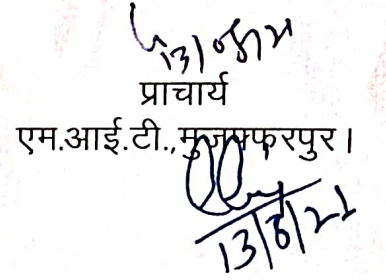 13/08/21
प्राचार्य
एम.आई.टी.,मुजफ्फरपुर।
13/8/21